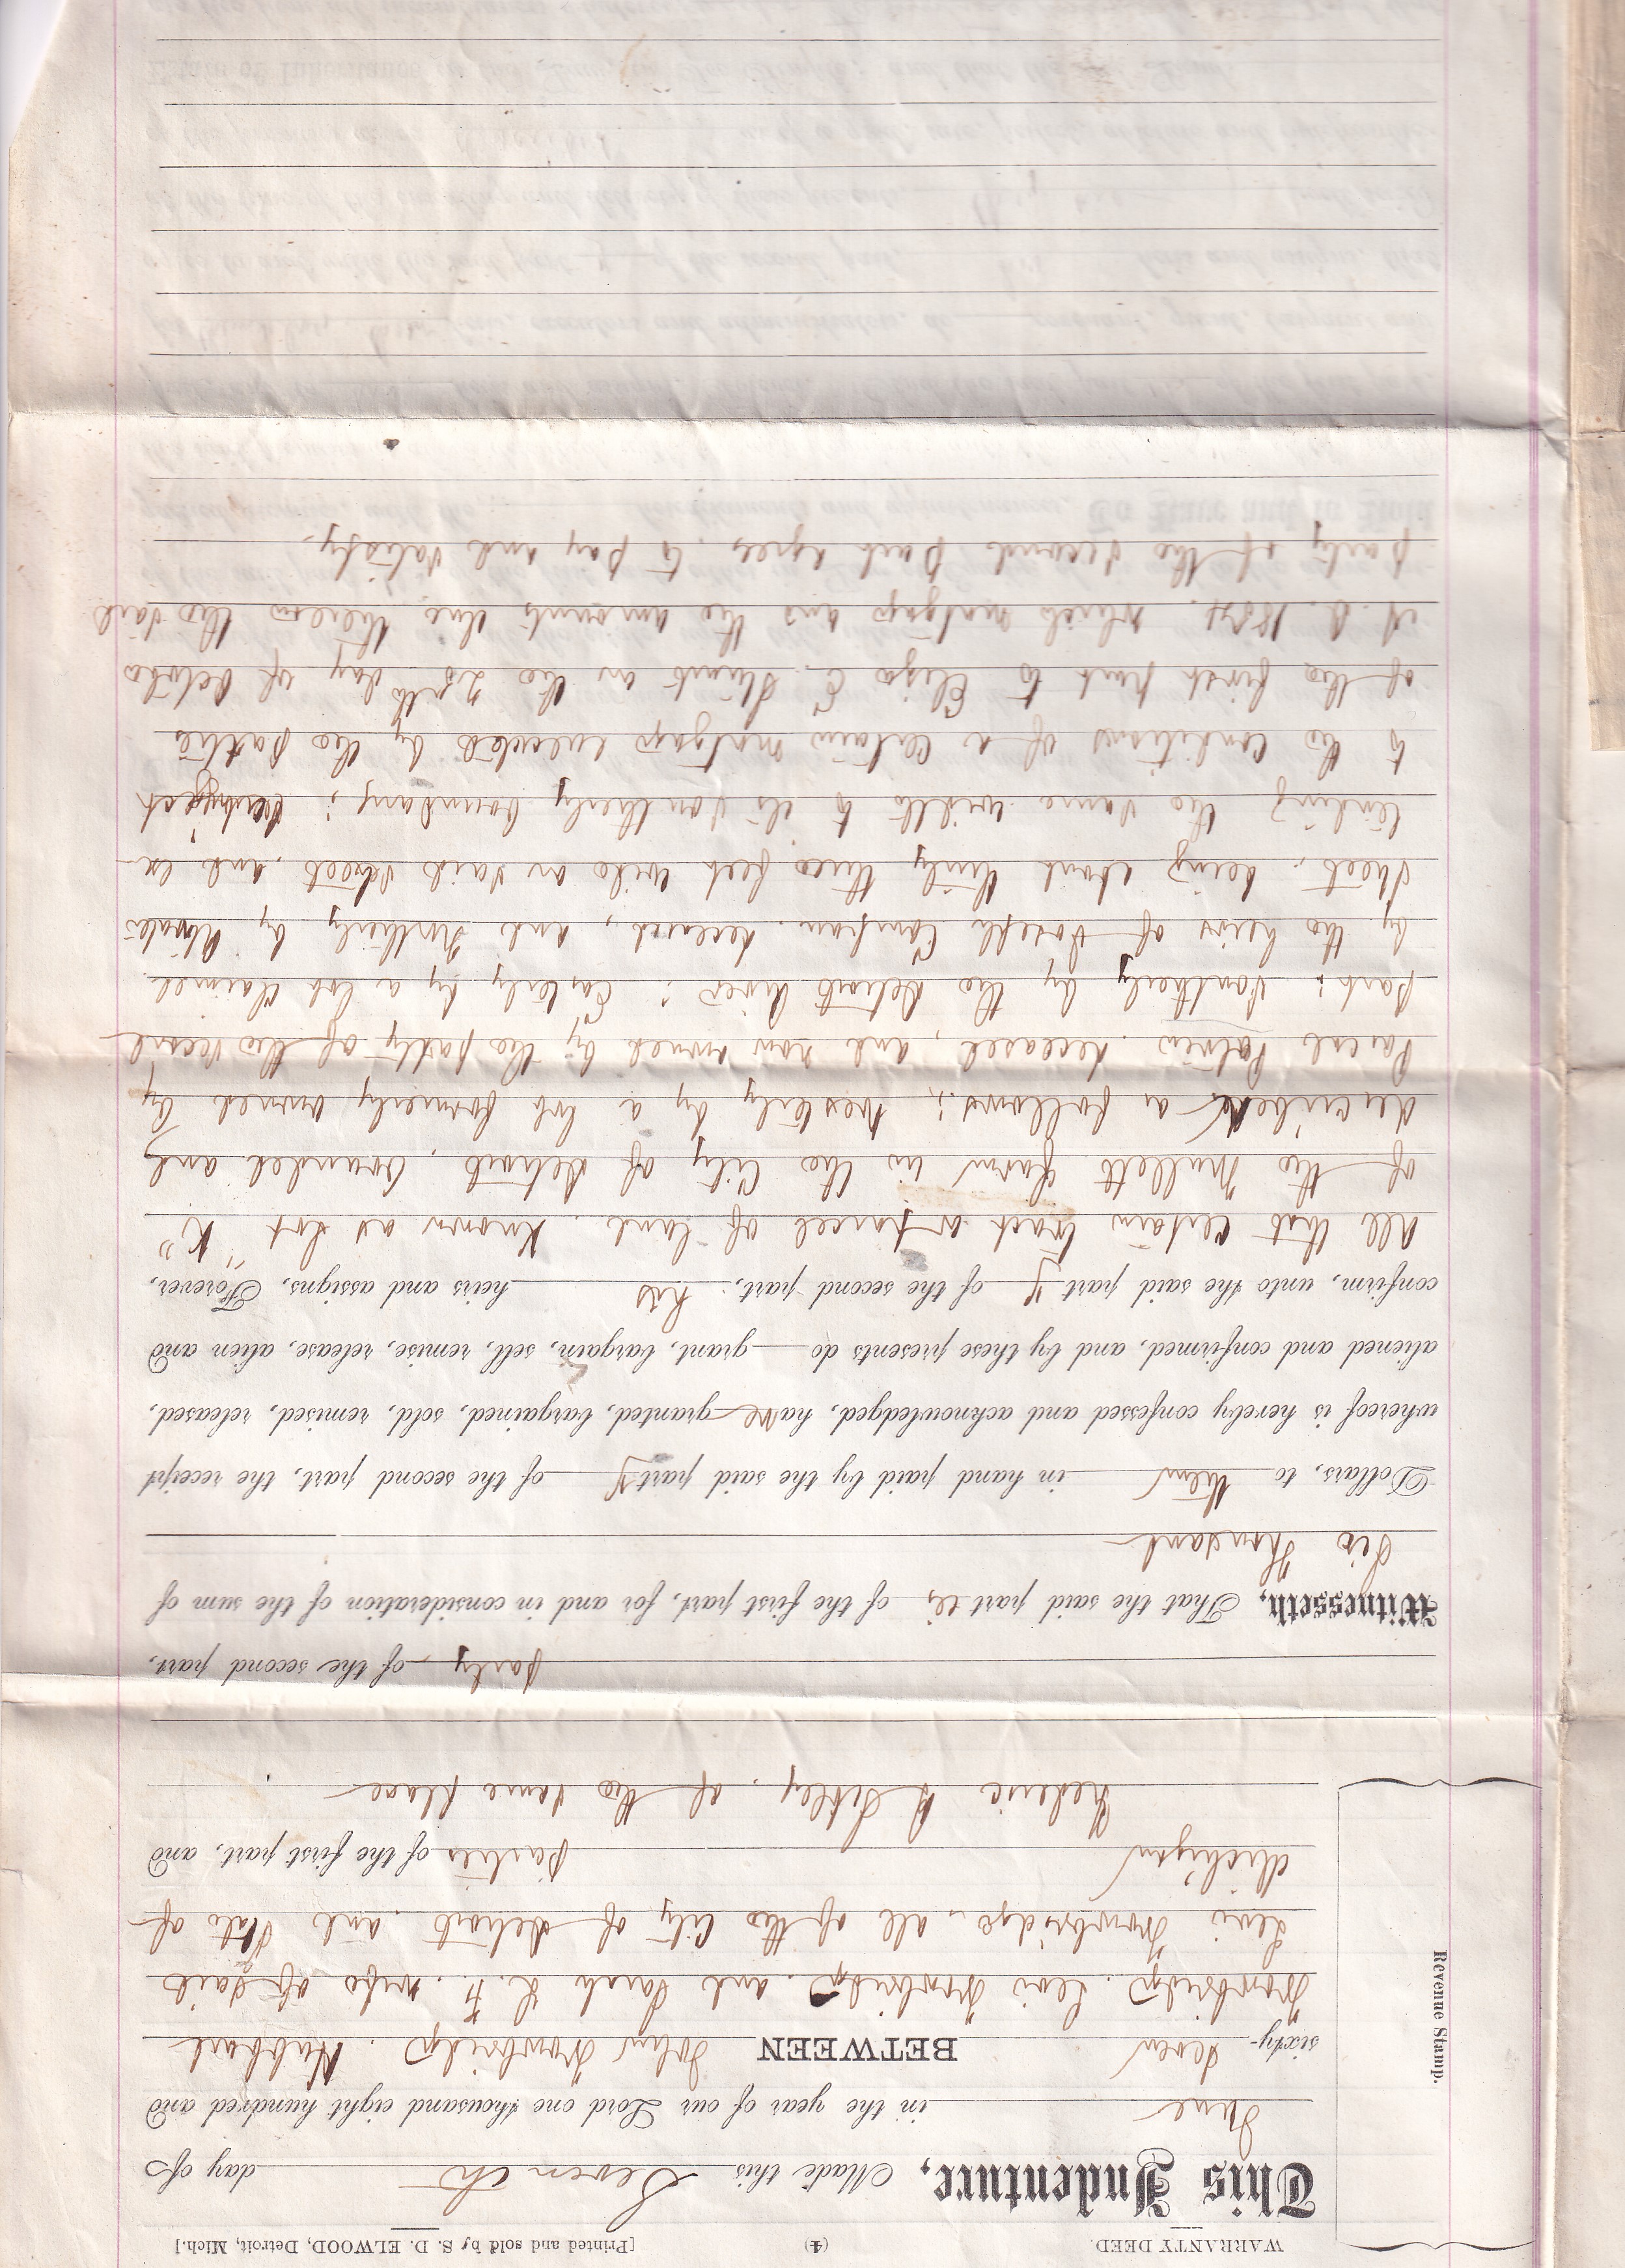 WARRANTY DEED. (4) [Printed and sold by S. D. ELWOOD, Detroit, Mich.]
Revenue Stamp.
This Indenture, Made this Seventh day of
June in the year of our Lord one thousand eight hundred and
sixty-seven BETWEEN John Trowbridge, Hubbard
Trowbridge, Levi Trowbridge and Sarah L. F. wife of said
Levi Trowbridge, all of the City of Detroit and State of
Michigan parties of the first part, and
Frederic L Seitz, of the same place
party of the second part,
Witnesseth, That the said parties of the first part, for and in consideration of the sum of
Six Thousand
Dollars, to them in hand paid by the said party of the second part, the receipt
whereof is hereby confessed and acknowledged, have granted, bargained, sold, remised, released,
aliened and confirmed, and by these presents do grant, bargain, sell, remise, release, alien and
confirm, unto the said party of the second part, his heirs and assigns, Forever,
All that certain tract or parcel of land, known as Lot "K"
of the Mullett Farm in the City of Detroit, bounded and
described as follows; Westerly by a lot formerly owned by
deceased, and now owned by the party of the second
part; Southerly by the Detroit River; Easterly by a lot claimed
by the heirs of Joseph Campau, deceased, and Northerly by
Street, being about thirty three feet wide on said street, and ex
tending the same width to its Southerly boundary; Subject
to the conditions of a certain mortgage executed by the parties
of the first part to Eliza C. on the 25th day of October
A. D. which mortgage and the amounts due thereon the said
party of the second part agrees to pay and satisfy.